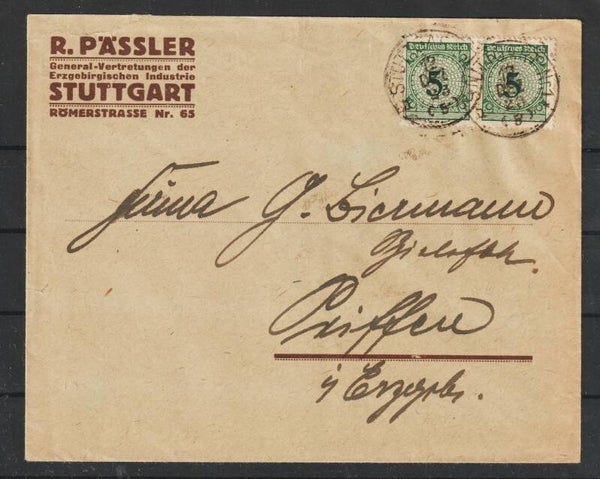 R. PÄSSLER
General-Vertretungen der
Erzgebirgischen Industrie
STUTTGART
RÖMERSTRASSE Nr. 65
Deutsches Reich
5
Deutsches Reich
5
STUTTGART
Firma G. Biermann
Seiffen
i/ Erzgeb.